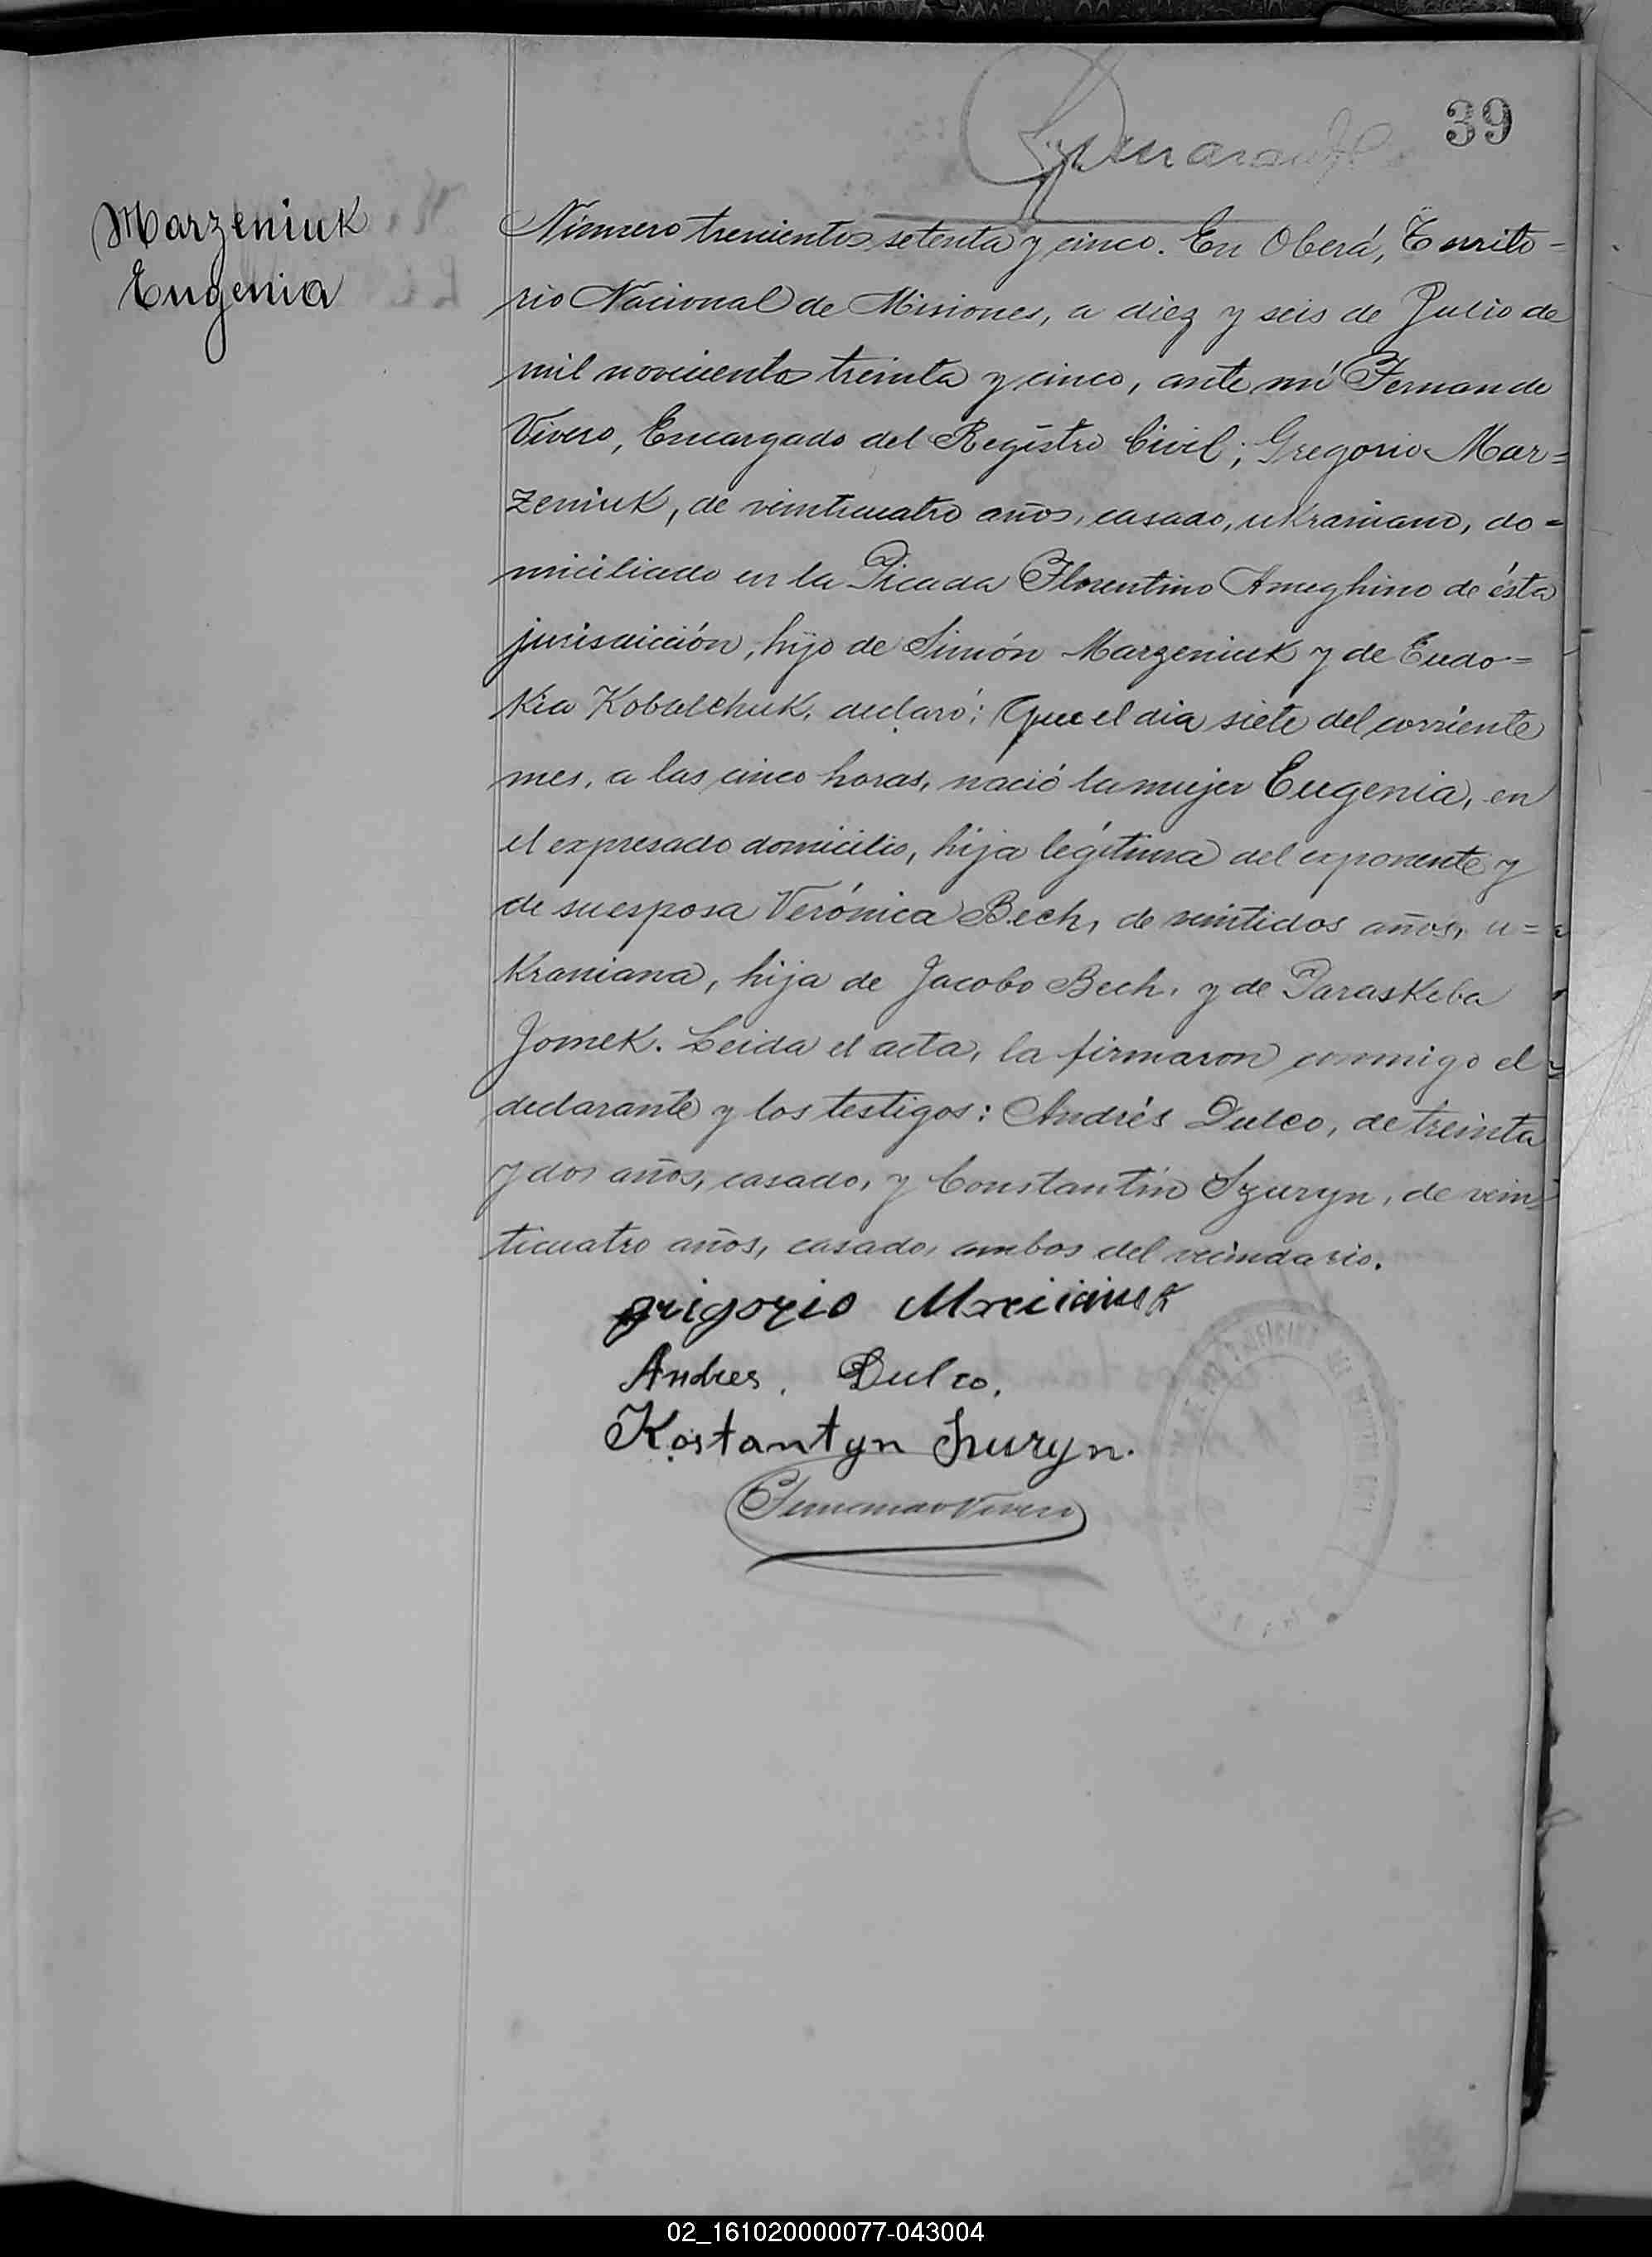 39
Marzeniuk
Eugenia
Número trecientos setenta y cinco. En Oberá, Territo-
rio Nacional de Misiones, a diez y seis de Julio de
mil novecientos treinta y cinco, ante mí Fernando
Vivero, Encargado del Registro Civil; Gregorio Mar=
zeniuk, de veinticuatro años, casado, ukraniano, do=
miciliado en la Picada Florentino Ameghino de ésta
jurisdicción, hijo de Simón Marzeniuk y de Eudo=
kia Kobalchuk, declaró: Que el día siete del corriente
mes, a las cinco horas, nació la mujer Eugenia, en
el expresado domicilio, hija legítima del exponente y
de su esposa Verónica Bech, de veintidos años, u=
kraniana, hija de Jacobo Bech, y de Paraskeba
Jomek. Leida el acta, la firmaron conmigo el
declarante y los testigos: Andrés Dulco, de treinta
y dos años, casado, y Constantín Szuryn, de vein
ticuatro años, casado, ambos del vecindario.
grigorio
Andres. Dulco.
Kostantyn Szuryn.
Fernando Vivero
02_161020000077-043004